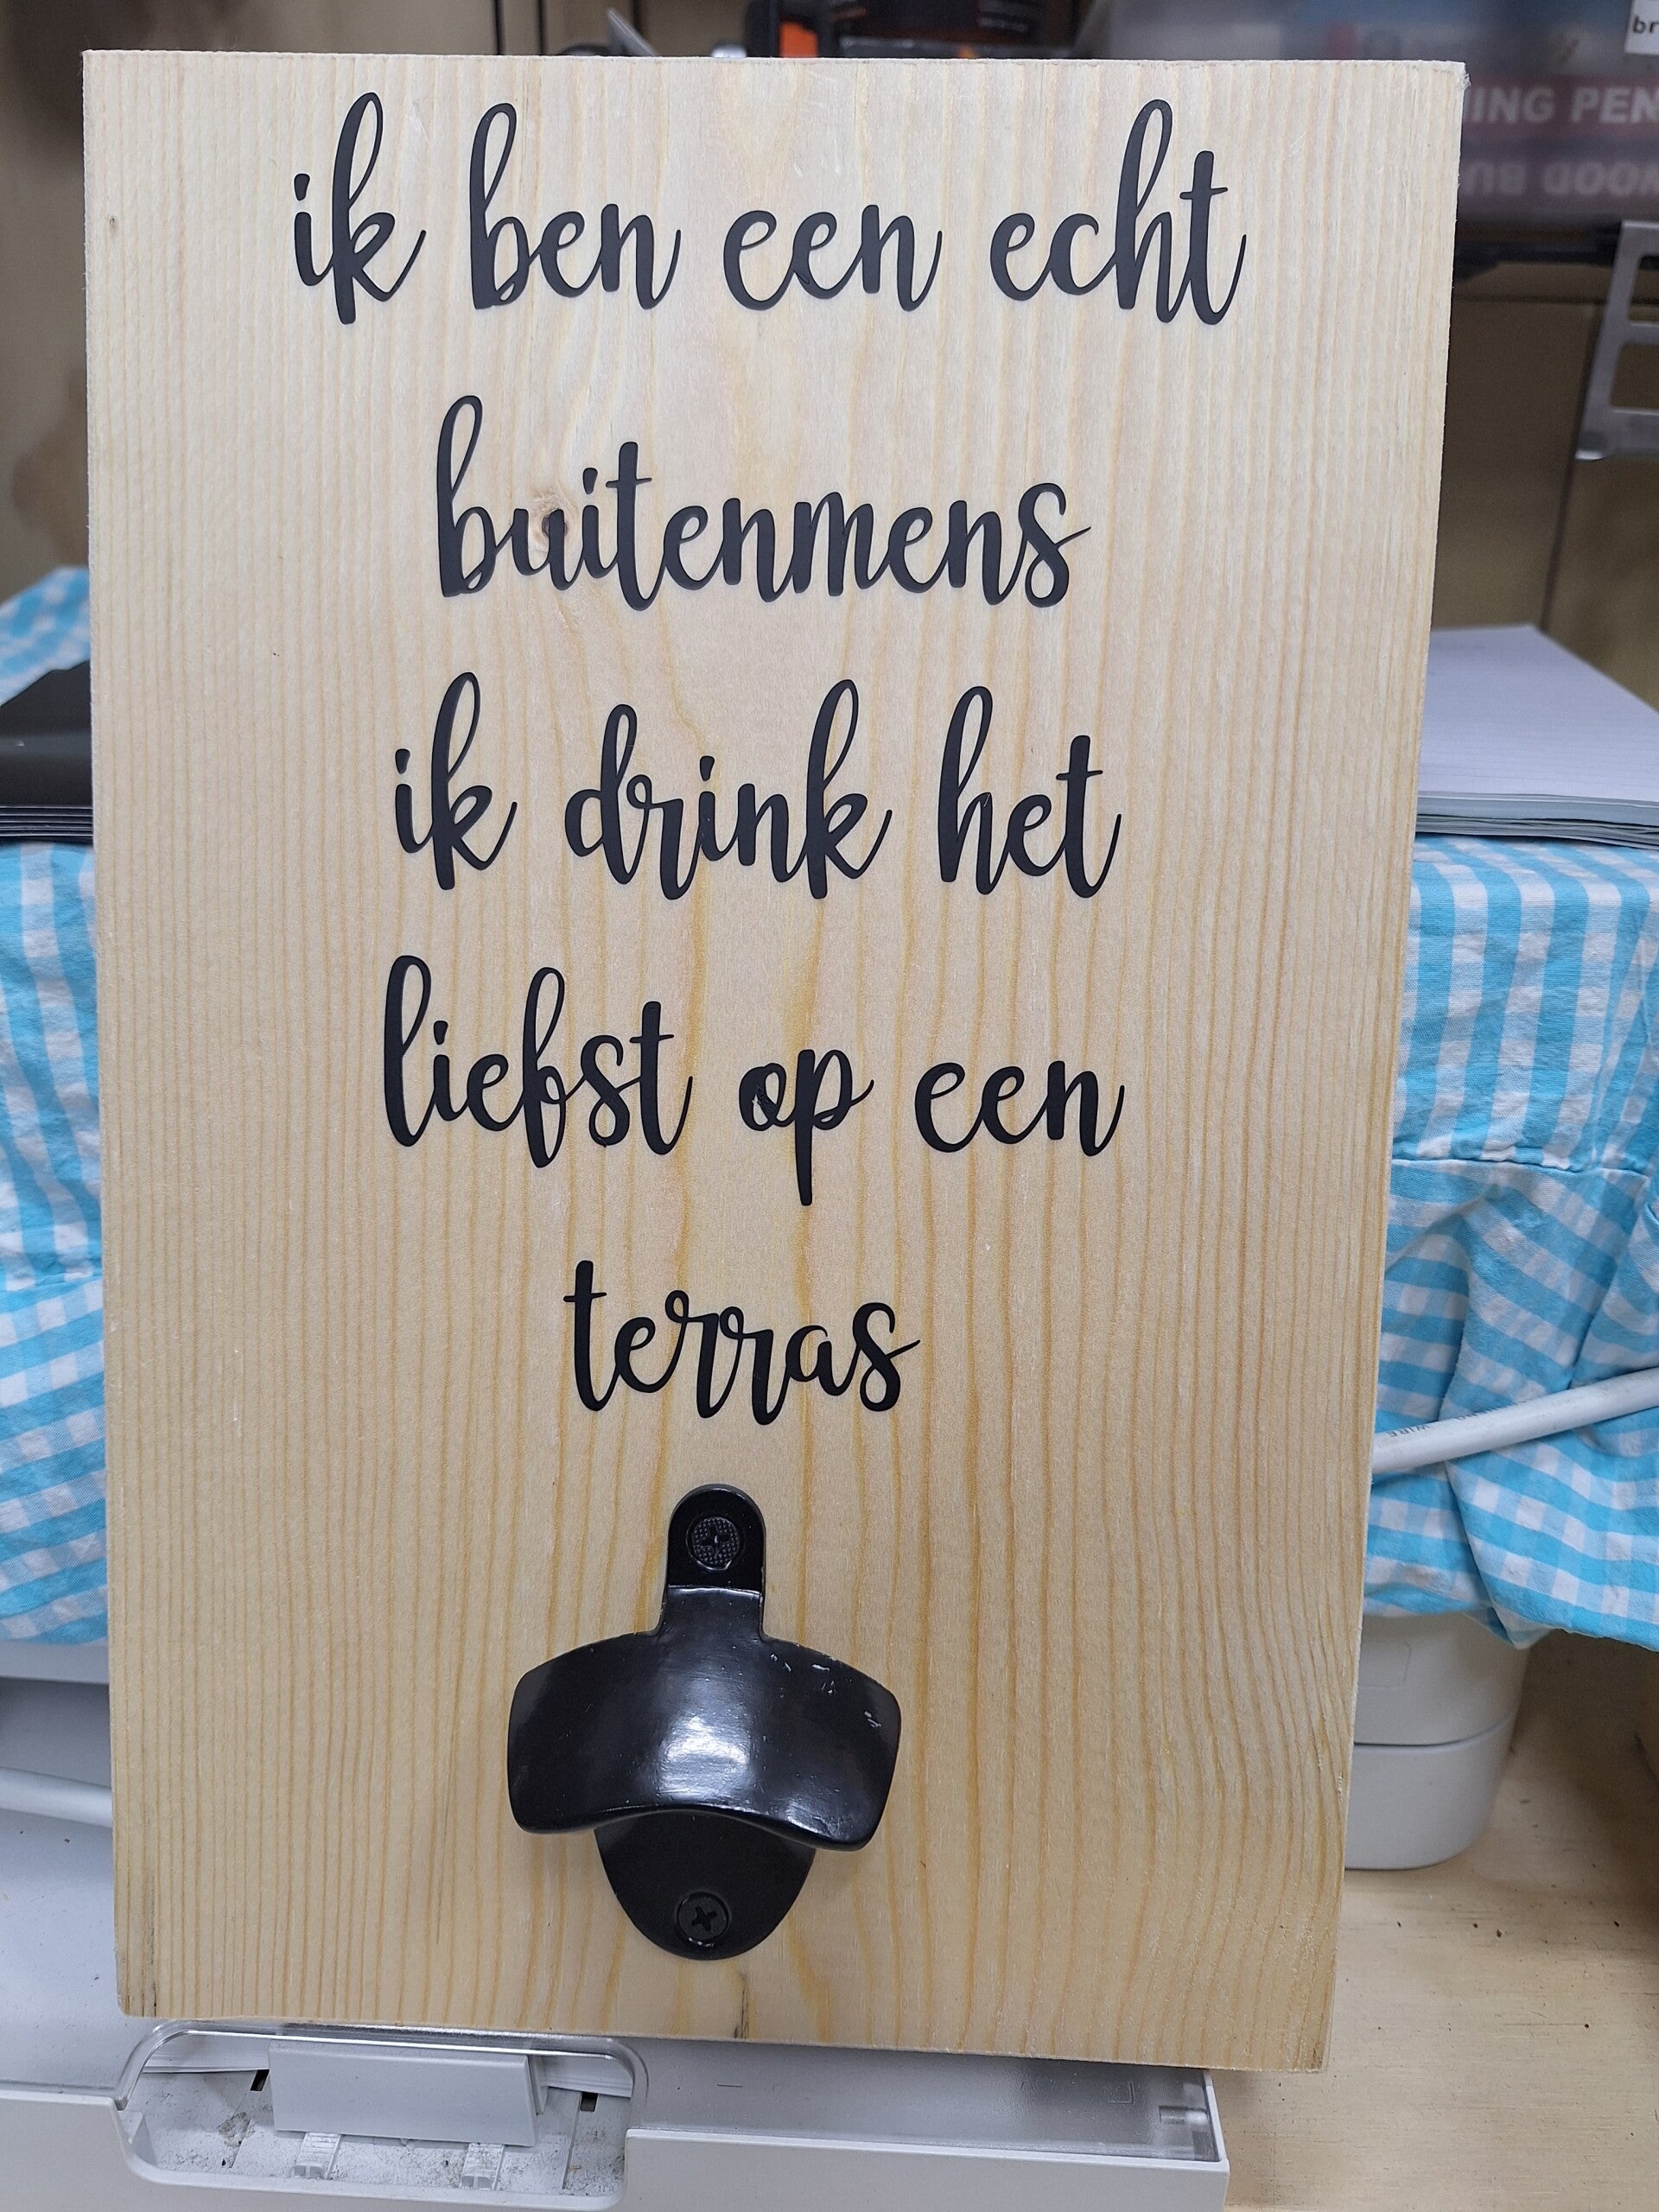 ik ben een echt
buitenmens
ik drink het
liefst op een
terras
ING PEN
WIRE